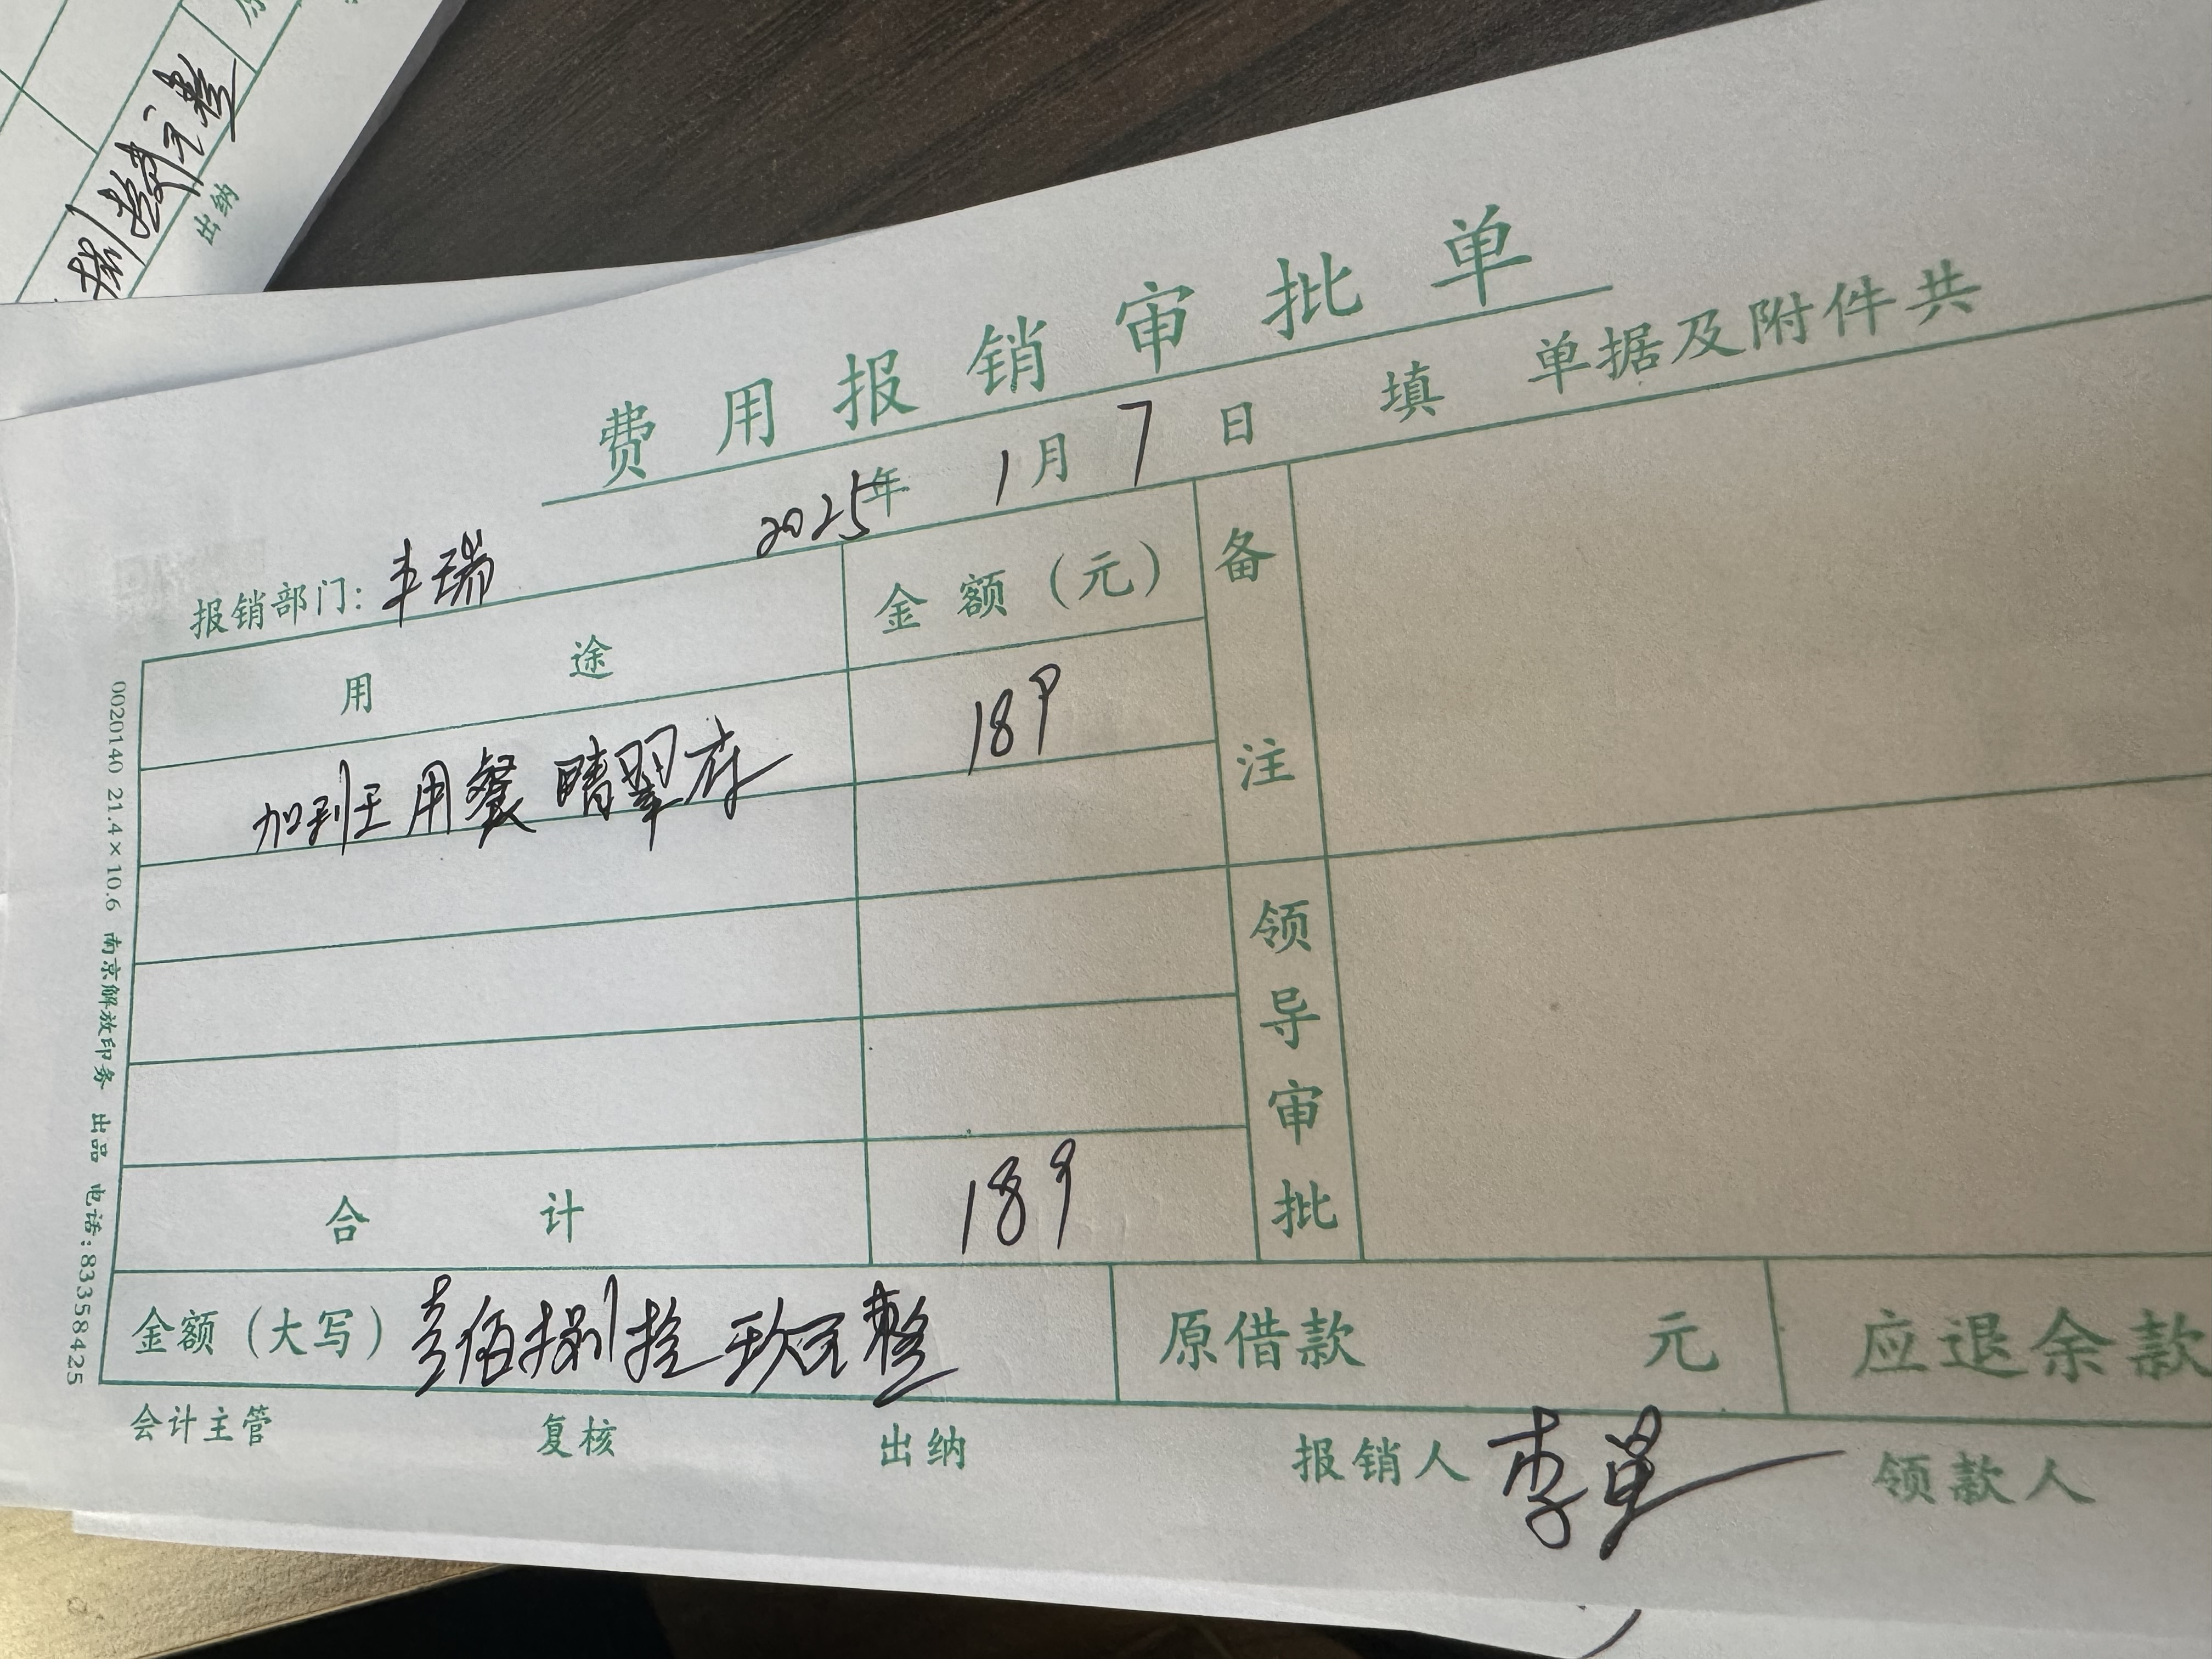 捌拾贰元整
出纳
费用报销审批单
2025年 1月 7日 填 单据及附件共
报销部门: 丰瑞
用途 金额(元) 备注
加班用餐 晴翠府 189
领导审批
合计 189
金额(大写) 壹佰捌拾玖元整 原借款 元 应退余款
会计主管 复核 出纳 报销人 李单 领款人
0020140 21.4×10.6 南京解放印务 出品 电话:83358425